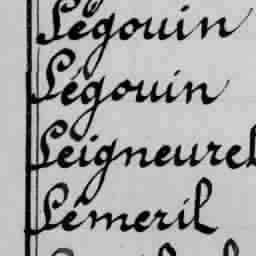 Légouin
Légouin
Leigneurel
Lémeril